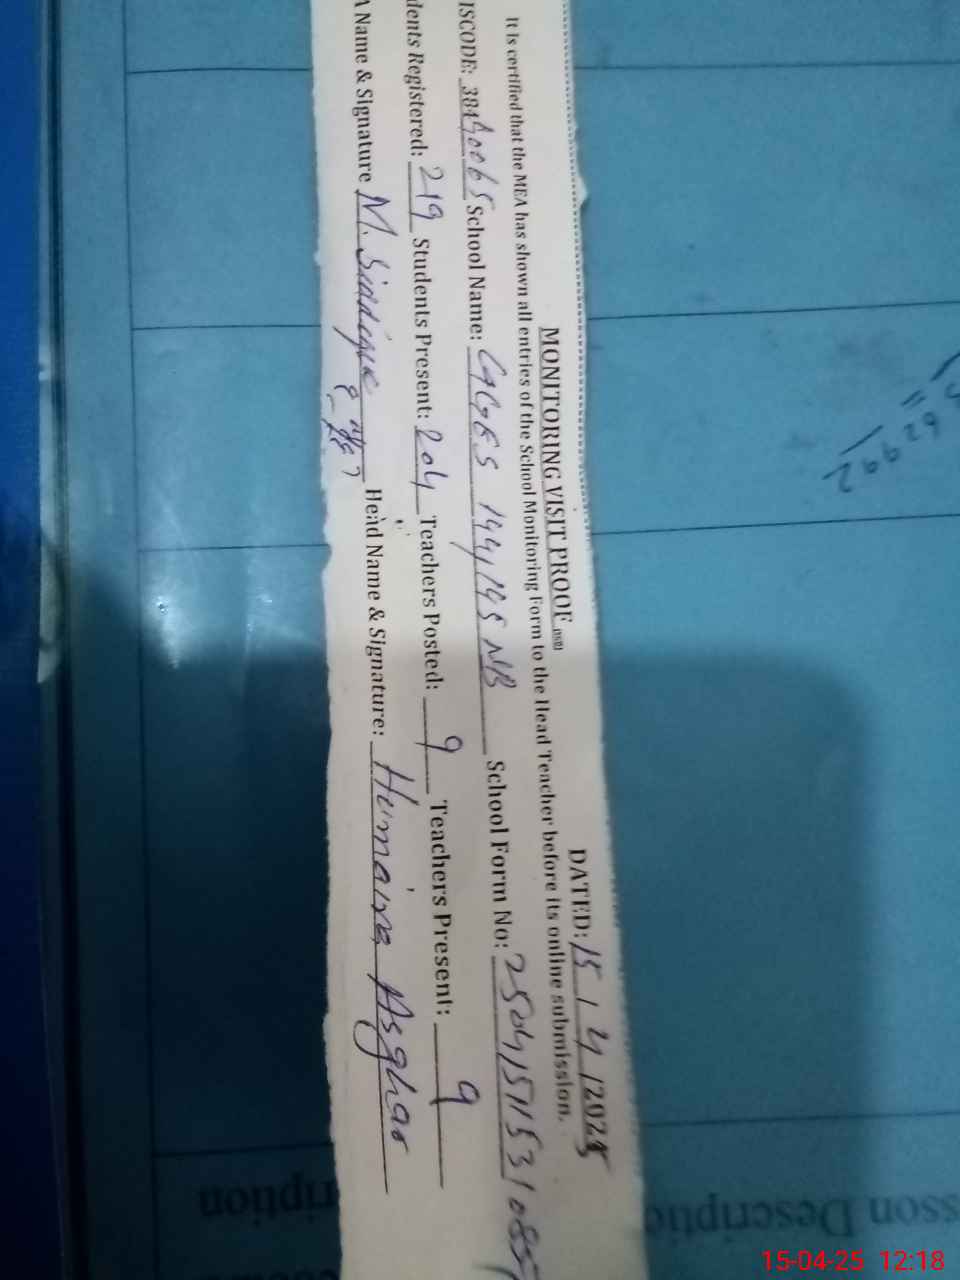 MONITORING VISIT PROOF (MSB) DATED: 15/4/2025
It is certified that the MEA has shown all entries of the School Monitoring Form to the Head Teacher before its online submission.
ISCODE: 38440065 School Name: GGES 144,145 NB School Form No: 250415115310857
dents Registered: 219 Students Present: 204 Teachers Posted: 9 Teachers Present: 9
A Name & Signature M. Siddique Head Name & Signature: Humaira Asghar
62992
sson Descriptio
ription
15-04-25 12:18